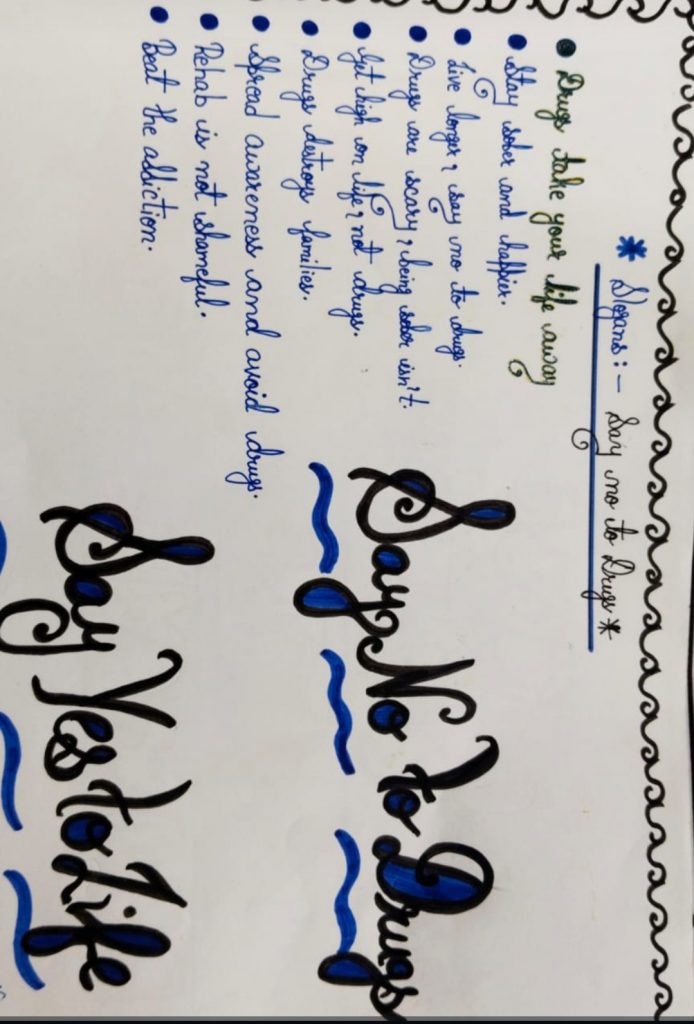 * Slogans :- Say no to Drugs *
• Drugs take your life away
• Stay sober and happier.
• Live longer, say no to drugs.
• Drugs are scary, being sober isn't.
• Get high on life, not drugs.
• Drugs destroys families.
• Spread awareness and avoid drugs.
• Rehab is not shameful.
• Beat the addiction.
Say No to Drugs
Say Yes to Life